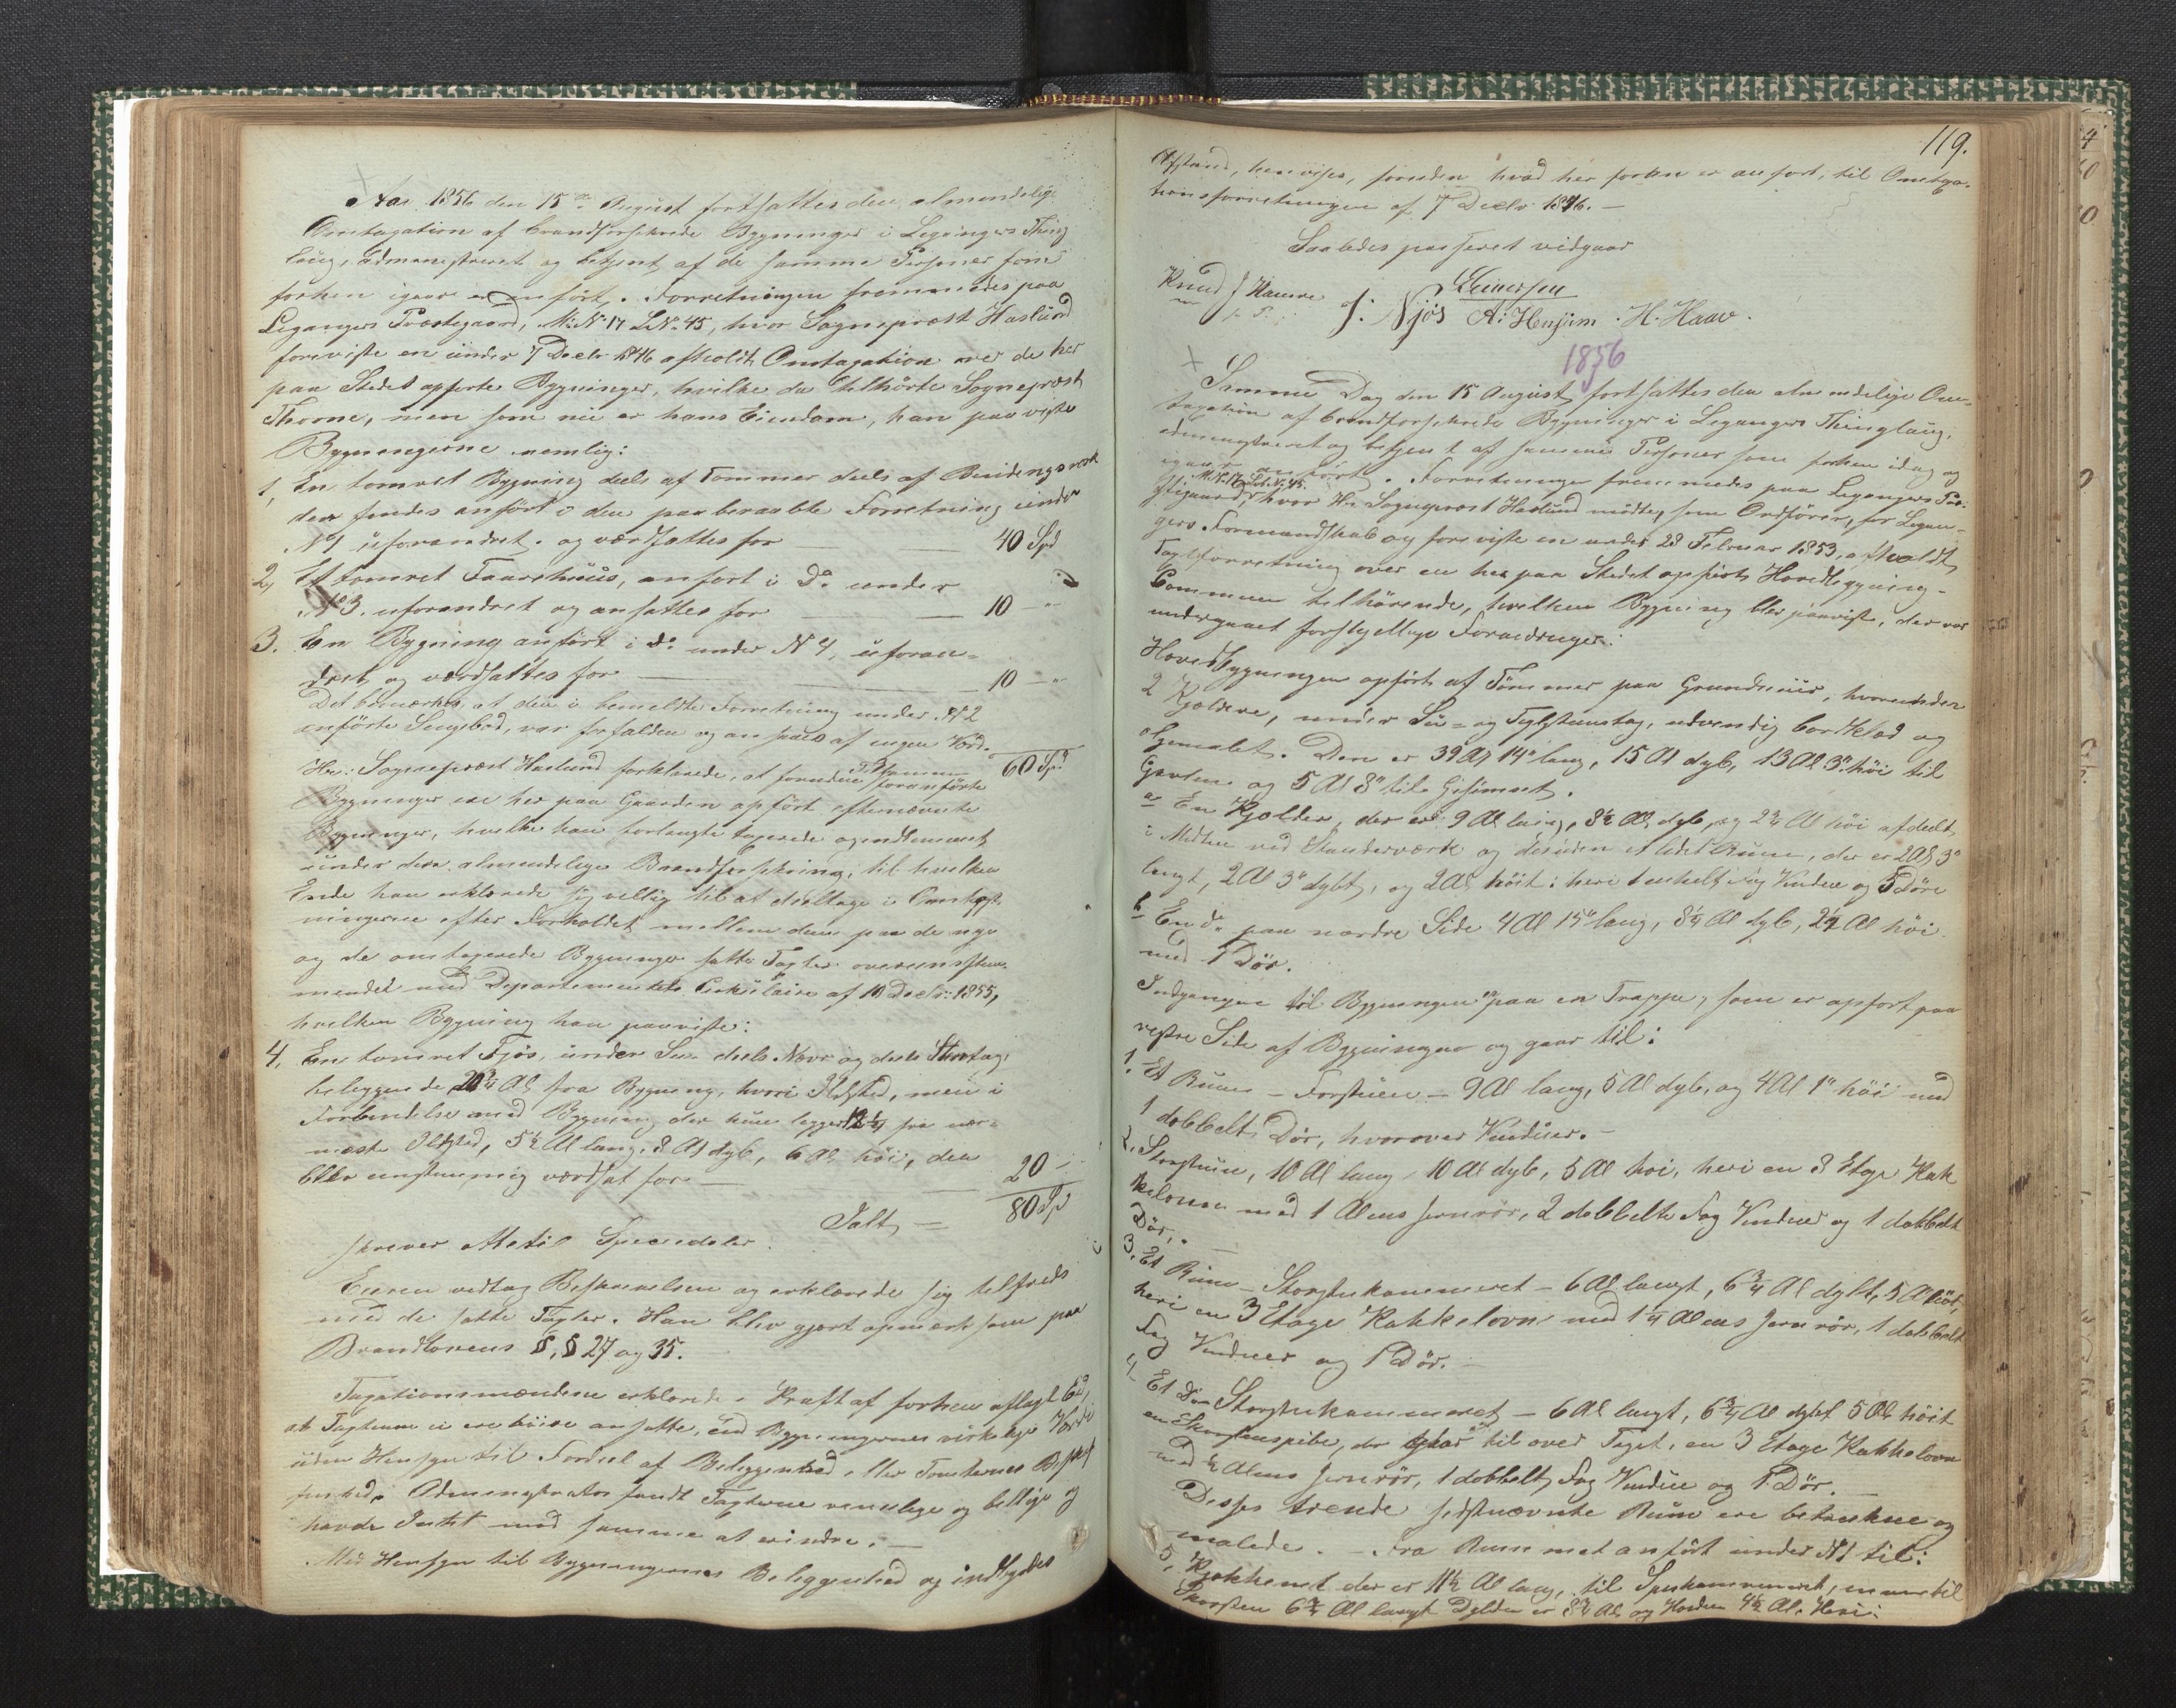 Aar 1856 den 15de August fortsattes den almindelige
Omtaxation af brandforsikrede Bygninger i Leganger Thing
laug, administreret og betjent af de samme Personer som
forhen igaar er anført. Forretningen fremmedes paa
Legangers Præstegaard, M: N. 17 L.N. 45, hvor Sognepræst Haslund
foreviste en under 7 Decbr 1846 afholdt Omtaxation over de her
paa Stedet opførte Bygninger, hvilke da tilhørte Sognepræst
Thorne, men som nu er hans Eiendom, han paaviste
Bygningerne nemlig:
1, En tømret Bygning deels af Tømmer deels af Bindingsværk
der findes anført i den paaberaabte Forretning under
N 1 uforandret og værdsattes for 40 Spd
2, Et tømret Taarehuus, anført i Do under
No 3. uforandret og ansattes for 10 - "
3. En Bygning anført i do under N 4, uforan=
dret og værdsattes for 10 - "
Det bemærkes, at den i bemeldte Forretning under N 2
anførte Sengebod, var forfalden og ansaaes af ingen Værd.
Tilsammen 60 Spd
Hr: Sognepræst Haslund forklarede, at foruden foranførte
Bygninger ere her paa Gaarden opført efternævnte
Bygninger, hvilke han forlangte taxerede og indlemmet
under den almindelige Brandforsikring, til hvilken
Ende han erklærede sig villig til at deeltage i Omkost-
ningerne efter Forholdet mellem den paa de nye
og de omtaxerede Bygninger satte Taxter overeensstem-
mende med Departementets Cirkulaire af 10 Decbr: 1855,
hvilken Bygning han paaviste:
4, En tømret Fjøs, under Su- deels Nævr og deels Straatag,
beliggende 20¾ Al fra Bygning, hvori Ildsted, men i
Forbindelse med Bygning der kun ligger 12½ fra nær-
meste Ildsted, 5½ Al lang, 8 Al dyb, 6 Al høi, den
blev eenstemmig værdsat for 20 -
Ialt — 80 Spd
skriver Otteti Speciedaler.
Eieren vedtog Beskrivelsen og erklærede sig tilfreds
med de satte Taxter. Han blev gjort opmærksom paa
Brandlovens §,§ 27 og 35.
Taxationsmændene erklærede i Kraft af forhen aflagt Eed,
at Taxterne ei ere høiere ansatte, end Bygningernes virkelige Værdi
uden Hensyn til Fordeel af Beliggenhed eller Tomternes Beskaf
fenhed. Administrator fandt Taxterne rimelige og billige og
havde Intet mod samme at erindre. —
Med Hensyn til Bygningernes Beliggenhed og indbyrdes
119.
Afstand, henvises, foruden hvad her foran er anført, til Omtaxa-
tionsforretningen af 7 Decbr 1846. —
Saaledes passeret vidgaar
Knud J Hamre
m. f. P.
J: Njøs
A: Henjum. H. Haav.
1856
Samme Dag den 15 August fortsattes den almindelige Om-
taxation af brandforsikrede Bygninger i Legangers Thinglaug,
administreret og betjent af samme Personer som forhen idag og
igaar anført. Forretningen fremmedes paa Legangers Præ-
stegaard, M.N. 17 L.N. 45. hvor Hr Sognepræst Haslund mødte, som Ordfører, for Legan-
gers Formandskab og foreviste en under 28 Februar 1853 afholdt
Taxtforretning over en her paa Stedet opført Hovedbygning-
Communen tilhørende, hvilken Bygning blev paavist, der var
undergaaet forskjellige Forandringer:
Hovedbygningen opført af Tømmer paa Grundmuur, hvorunder
2 Kjældere, under Su= og Teglsteenstag, udvendig bordklæd og
oljemalet. Den er 39 Al 14" lang, 15 Al dyb, 13 Al 3" høi til
Gavlen og 5 Al 8" til Gesimset.
a En Kjælder, der er 9 Al lang, 8½ Al dyb, og 2¾ Al høi afdeelt
i Midten ved Standerværk og desuden et lidet Rum, der er 2 Al 3"
langt, 2 Al 3" dybt, og 2 Al høit: heri 1 enkelt Fag Vindue og 5 Døre
b En do paa nordre Side 4 Al 15" lang, 8¼ Al dyb, 2¼ Al høi
med 1 Dør.
Indgangen til Bygningen er paa en Trappe, som er opført paa
vestre Side af Bygningen og gaar til:
1. Et Rum — Forstuen — 9 Al lang, 5 Al dyb, og 4 Al 1" høi med
1 dobbelt Dør, hvorover Vinduer. —
2. Storstuen, 10 Al lang, 10 Al dyb, 5 Al høi, heri en 3 Etages Kak
kelovn med 1 Alens Jernrør, 2 dobbelte Fag Vinduer og 1 dobbelt
Dør. —
3. Et Rum — Storstukammeret — 6 Al langt, 6¾ Al dybt, 5 Al høit,
heri en 3 Etages Kakkelovn med 1¼ Alens Jernrør, 1 dobbelt
Fag Vinduer og 1 Dør. —
4. Et Do — Storstukammeret — 6 Al langt, 6¾ Al dybt 5 Al høit
en Skorstenspibe, der gaar til over Taget, en 3 Etages Kakkelovn
med ½ Alens Jernrør, 1 dobbelt Fag Vindue og 1 Dør. —
Disse trende sidstnævnte Rum ere betrukne og
malede. — Fra Rummet anført under N 1 til:
5, Kjøkkenet der er 11½ Al lang, til Spiskammeret, men til
Skorsten 6¾ Al langt Dybden er 8¾ Al og Høiden 4½ Al. Heri: